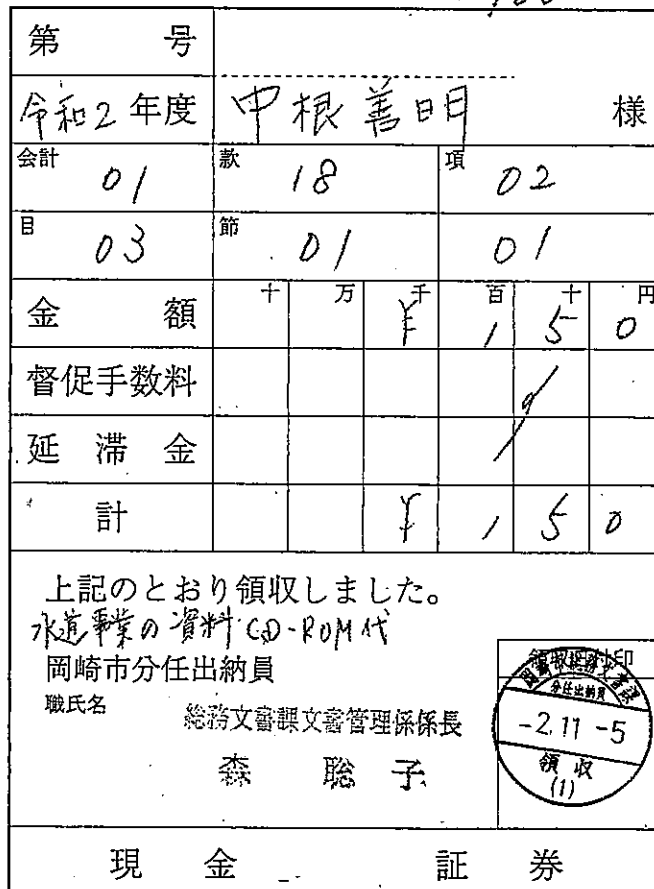 第 号
令和2年度 中根善明 様
会計 01 款 18 項 02
目 03 節 01 01
十 万 千 百 十 円
金額 ¥150
督促手数料
延滞金
計 ¥150
上記のとおり領収しました。
水道事業の資料CD-ROM代
岡崎市分任出納員
職氏名 総務文書課文書管理係係長
森 聡子
岡崎市総務文書課
分任出納員
-2.11-5
領収
(1)
現金 証券